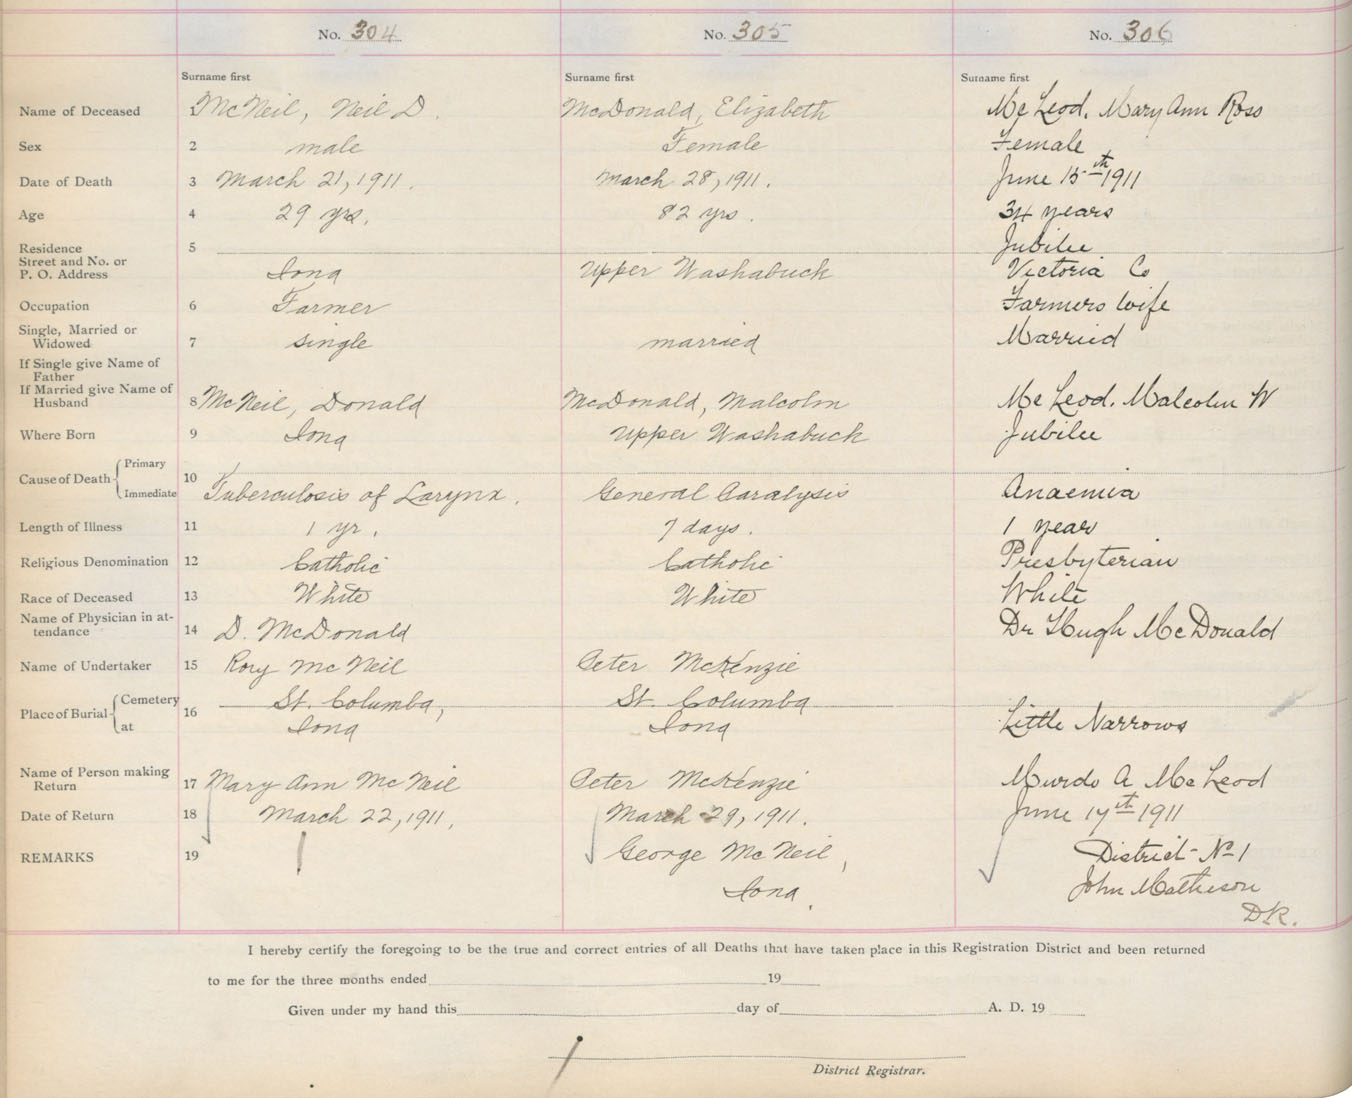 No. 304 No. 305 No. 306
Surname first Surname first Surname first
Name of Deceased 1 McNeil, Neil D. McDonald, Elizabeth Mc Leod, Mary Ann Ross
Sex 2 male Female Female
Date of Death 3 March 21, 1911. March 28, 1911. June 15th 1911
Age 4 29 yrs. 82 yrs. 34 years
Residence 5 Jubilee
Street and No. or
P. O. Address Iona Upper Washabuck Victoria Co
Occupation 6 Farmer Farmers wife
Single, Married or
Widowed 7 single married Married
If Single give Name of
Father
If Married give Name of
Husband 8 McNeil, Donald McDonald, Malcolm Mc Leod, Malcolm W
Where Born 9 Iona Upper Washabuck Jubilee
Primary
Cause of Death 10
Immediate Tuberculosis of Larynx. General Paralysis Anaemia
Length of Illness 11 1 yr. 7 days. 1 year
Religious Denomination 12 Catholic Catholic Presbyterian
Race of Deceased 13 White White White
Name of Physician in at-
tendance 14 D. McDonald Dr Hugh McDonald
Name of Undertaker 15 Rory McNeil Peter McKenzie
Cemetery St. Columba, St. Columba
Place of Burial 16
at Iona Iona Little Narrows
Name of Person making
Return 17 Mary Ann McNeil Peter McKenzie Murdo A Mc Leod
Date of Return 18 March 22, 1911. March 29, 1911. June 17th 1911
REMARKS 19 George McNeil, District No 1
Iona. John Matheson
D.R.
I hereby certify the foregoing to be the true and correct entries of all Deaths that have taken place in this Registration District and been returned
to me for the three months ended 19
Given under my hand this day of A. D. 19
District Registrar.